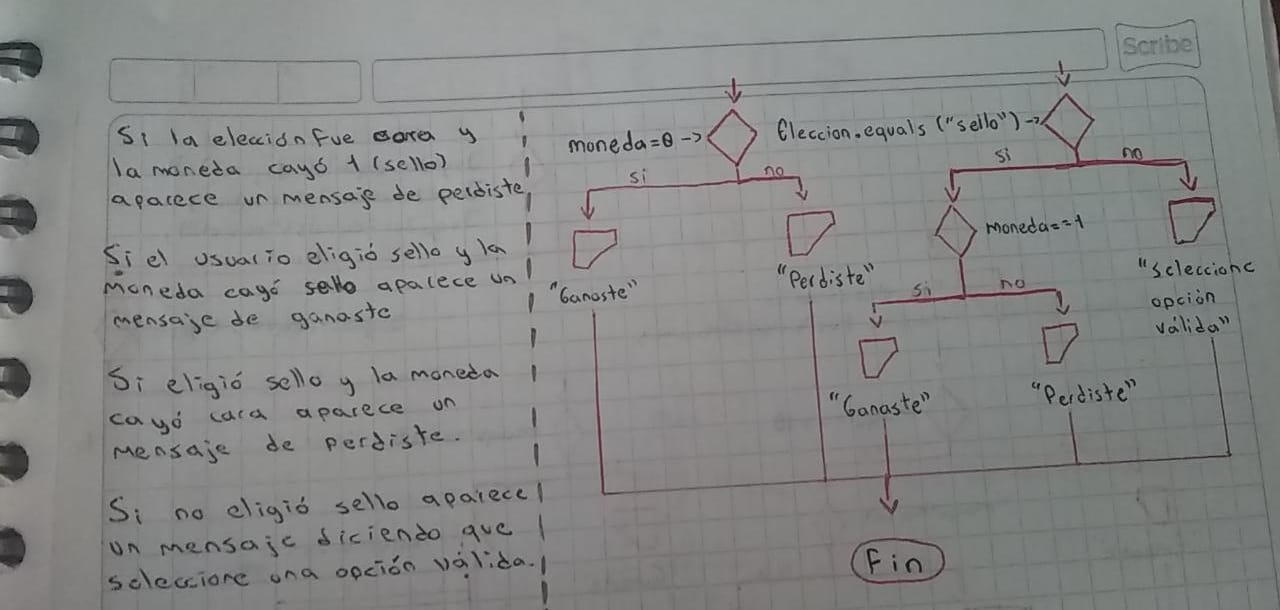 Scribe
Si la elección fue cara y
la moneda cayó 1 (sello)
aparece un mensaje de perdiste
Si el usuario eligió sello y la
moneda cayó sello aparece un
mensaje de ganaste
Si eligió sello y la moneda
cayó cara aparece un
mensaje de perdiste.
Si no eligió sello aparece
un mensaje diciendo que
seleccione una opción válida.
moneda=0 ->
Eleccion.equals ("sello") ->
si
no
si
no
moneda==1
"Ganaste"
"Perdiste"
"Seleccione
opción
válida"
si
no
"Ganaste"
"Perdiste"
Fin